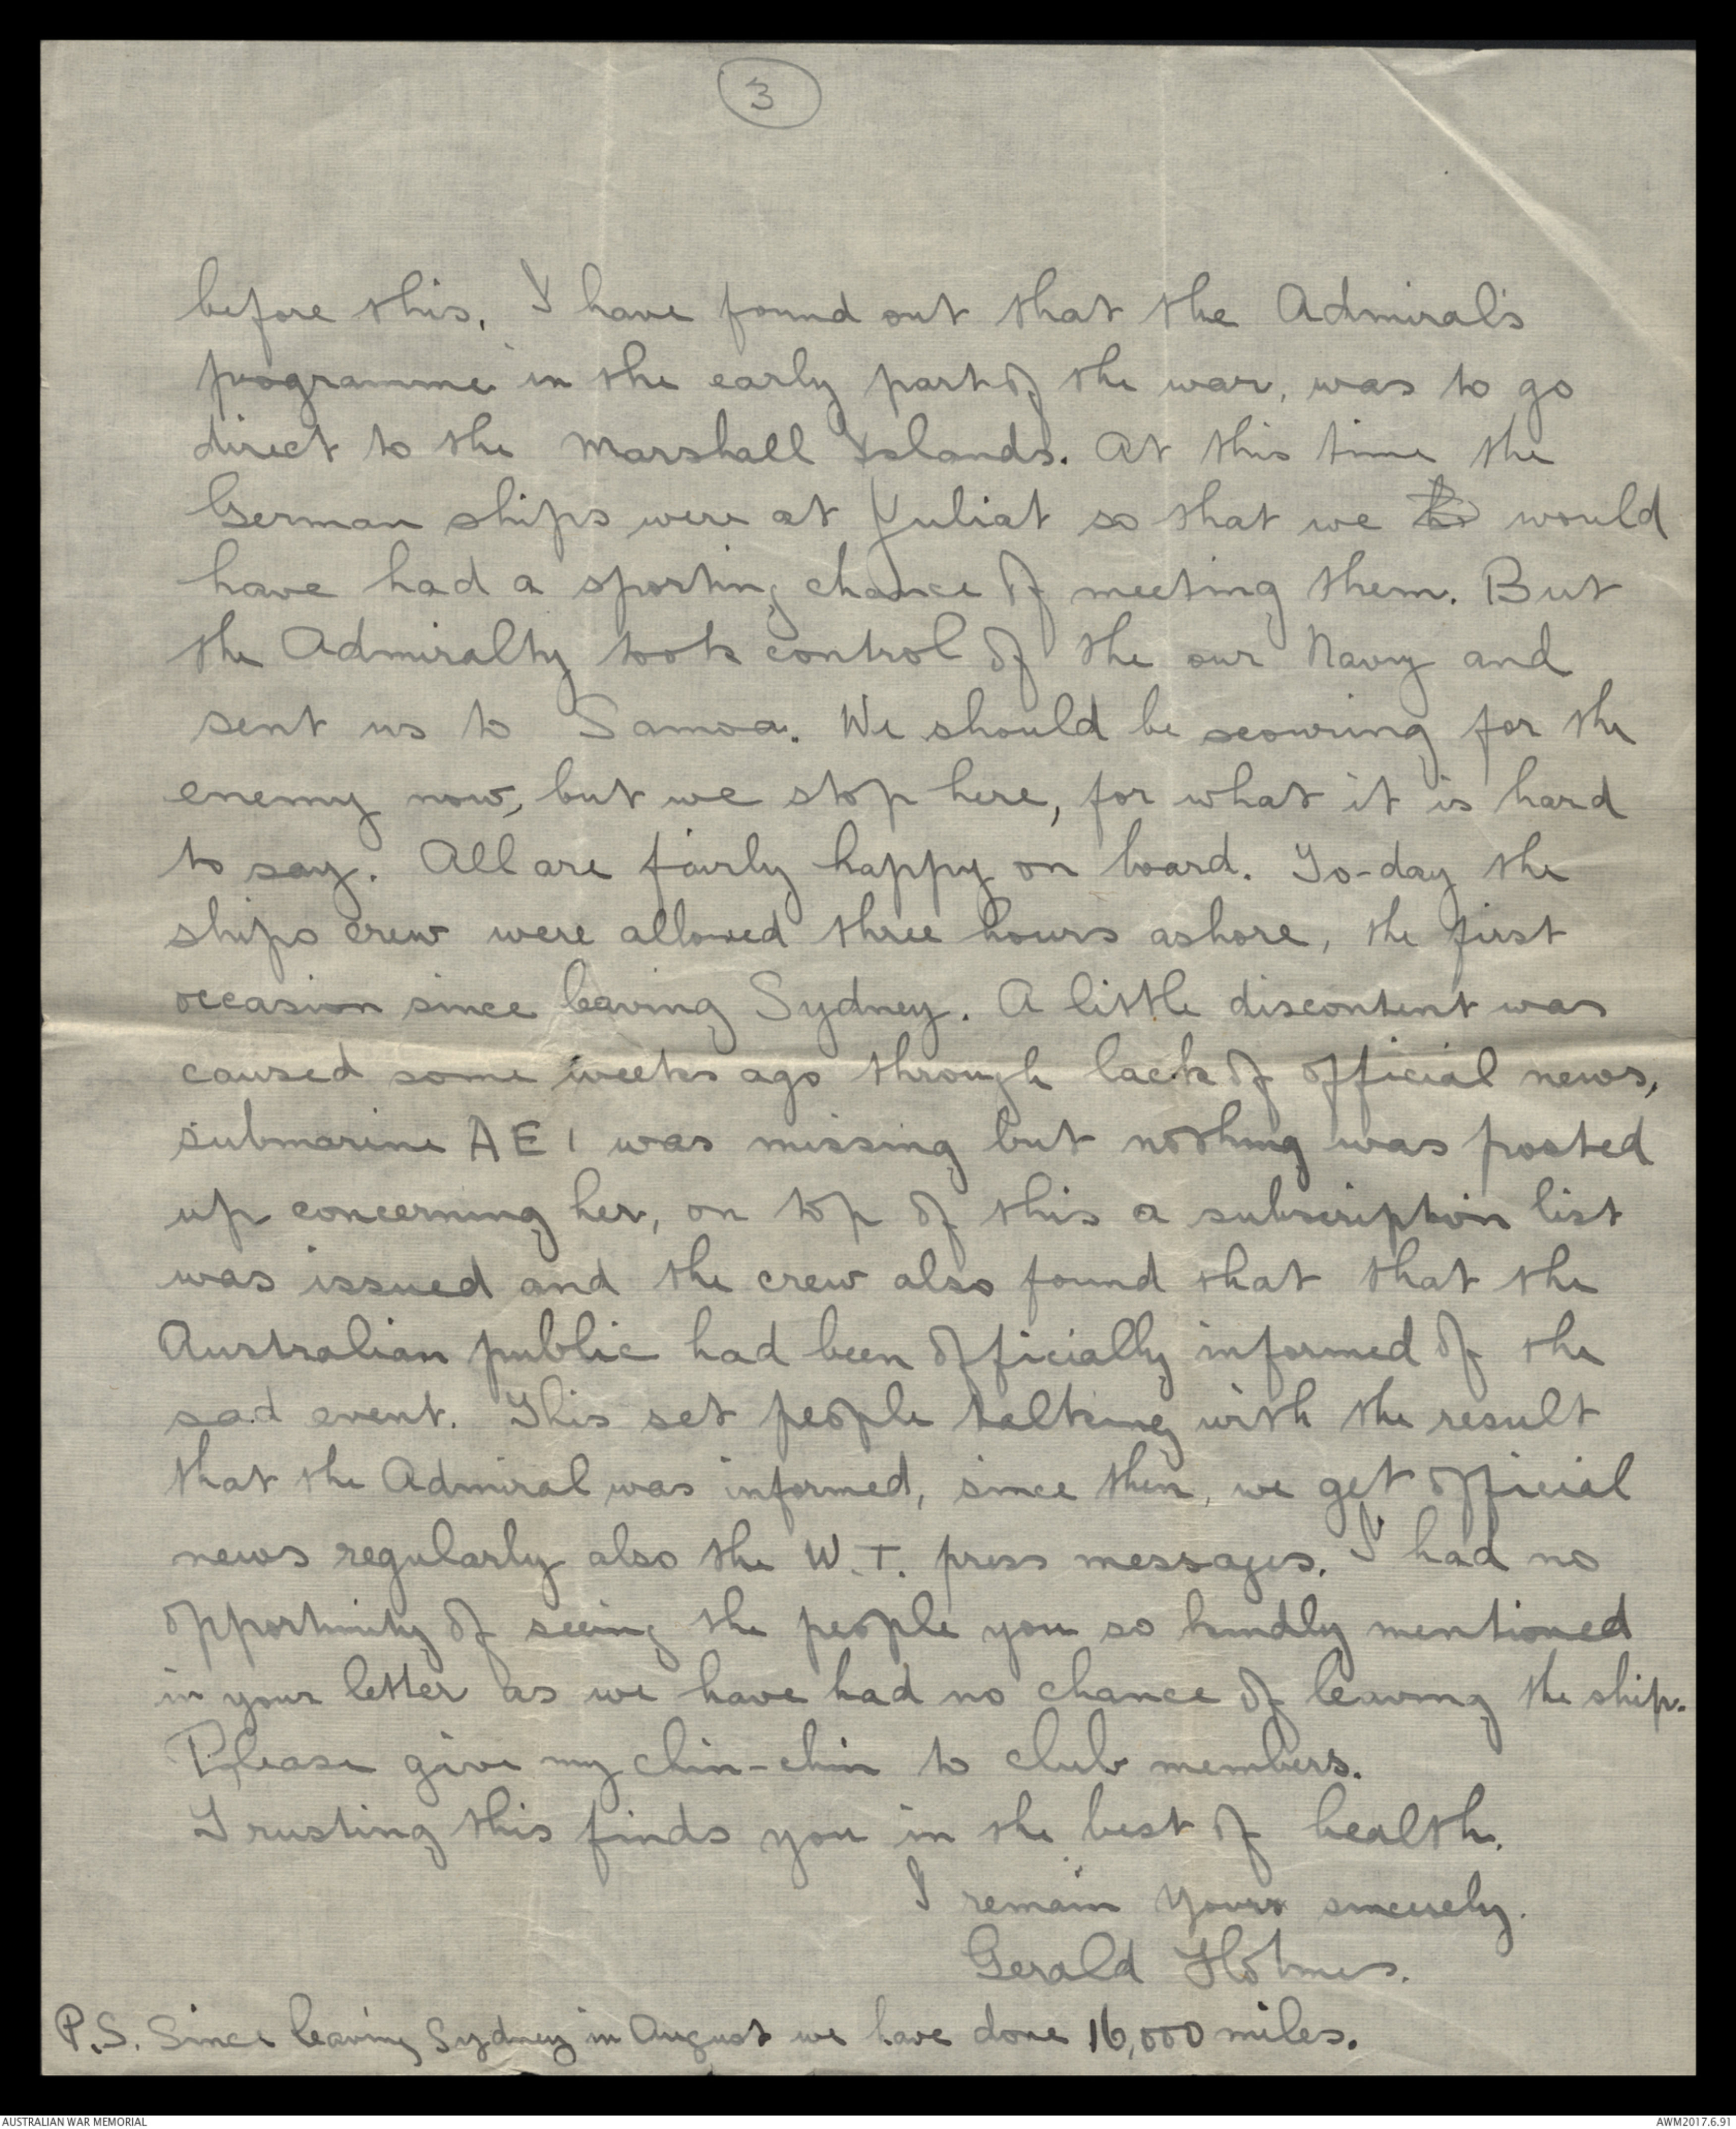 3
before this. I have found out that the Admiral's
programme in the early part of the war, was to go
direct to the Marshall Islands. At this time the
German ships were at Yuliat so that we would
have had a sporting chance of meeting them. But
the Admiralty took control of the our Navy and
sent us to Samoa. We should be scouring for the
enemy now, but we stop here, for what it is hard
to say. All are fairly happy on board. To-day the
ships crew were allowed three hours ashore, the first
occasion since leaving Sydney. A little discontent was
caused some weeks ago through lack of official news,
submarine AE1 was missing but nothing was posted
up concerning her, on top of this a subscription list
was issued and the crew also found that that the
Australian public had been officially informed of the
sad event. This set people talking with the result
that the Admiral was informed, since then, we get official
news regularly also the W.T. press messages. I had no
opportunity of seeing the people you so kindly mentioned
in your letter as we have had no chance of leaving the ship.
Please give my chin-chin to club members.
Trusting this finds you in the best of health.
I remain Yours sincerely.
Gerald Holmes.
P.S. Since leaving Sydney in August we have done 16,000 miles.
AUSTRALIAN WAR MEMORIAL
AWM2017.6.91